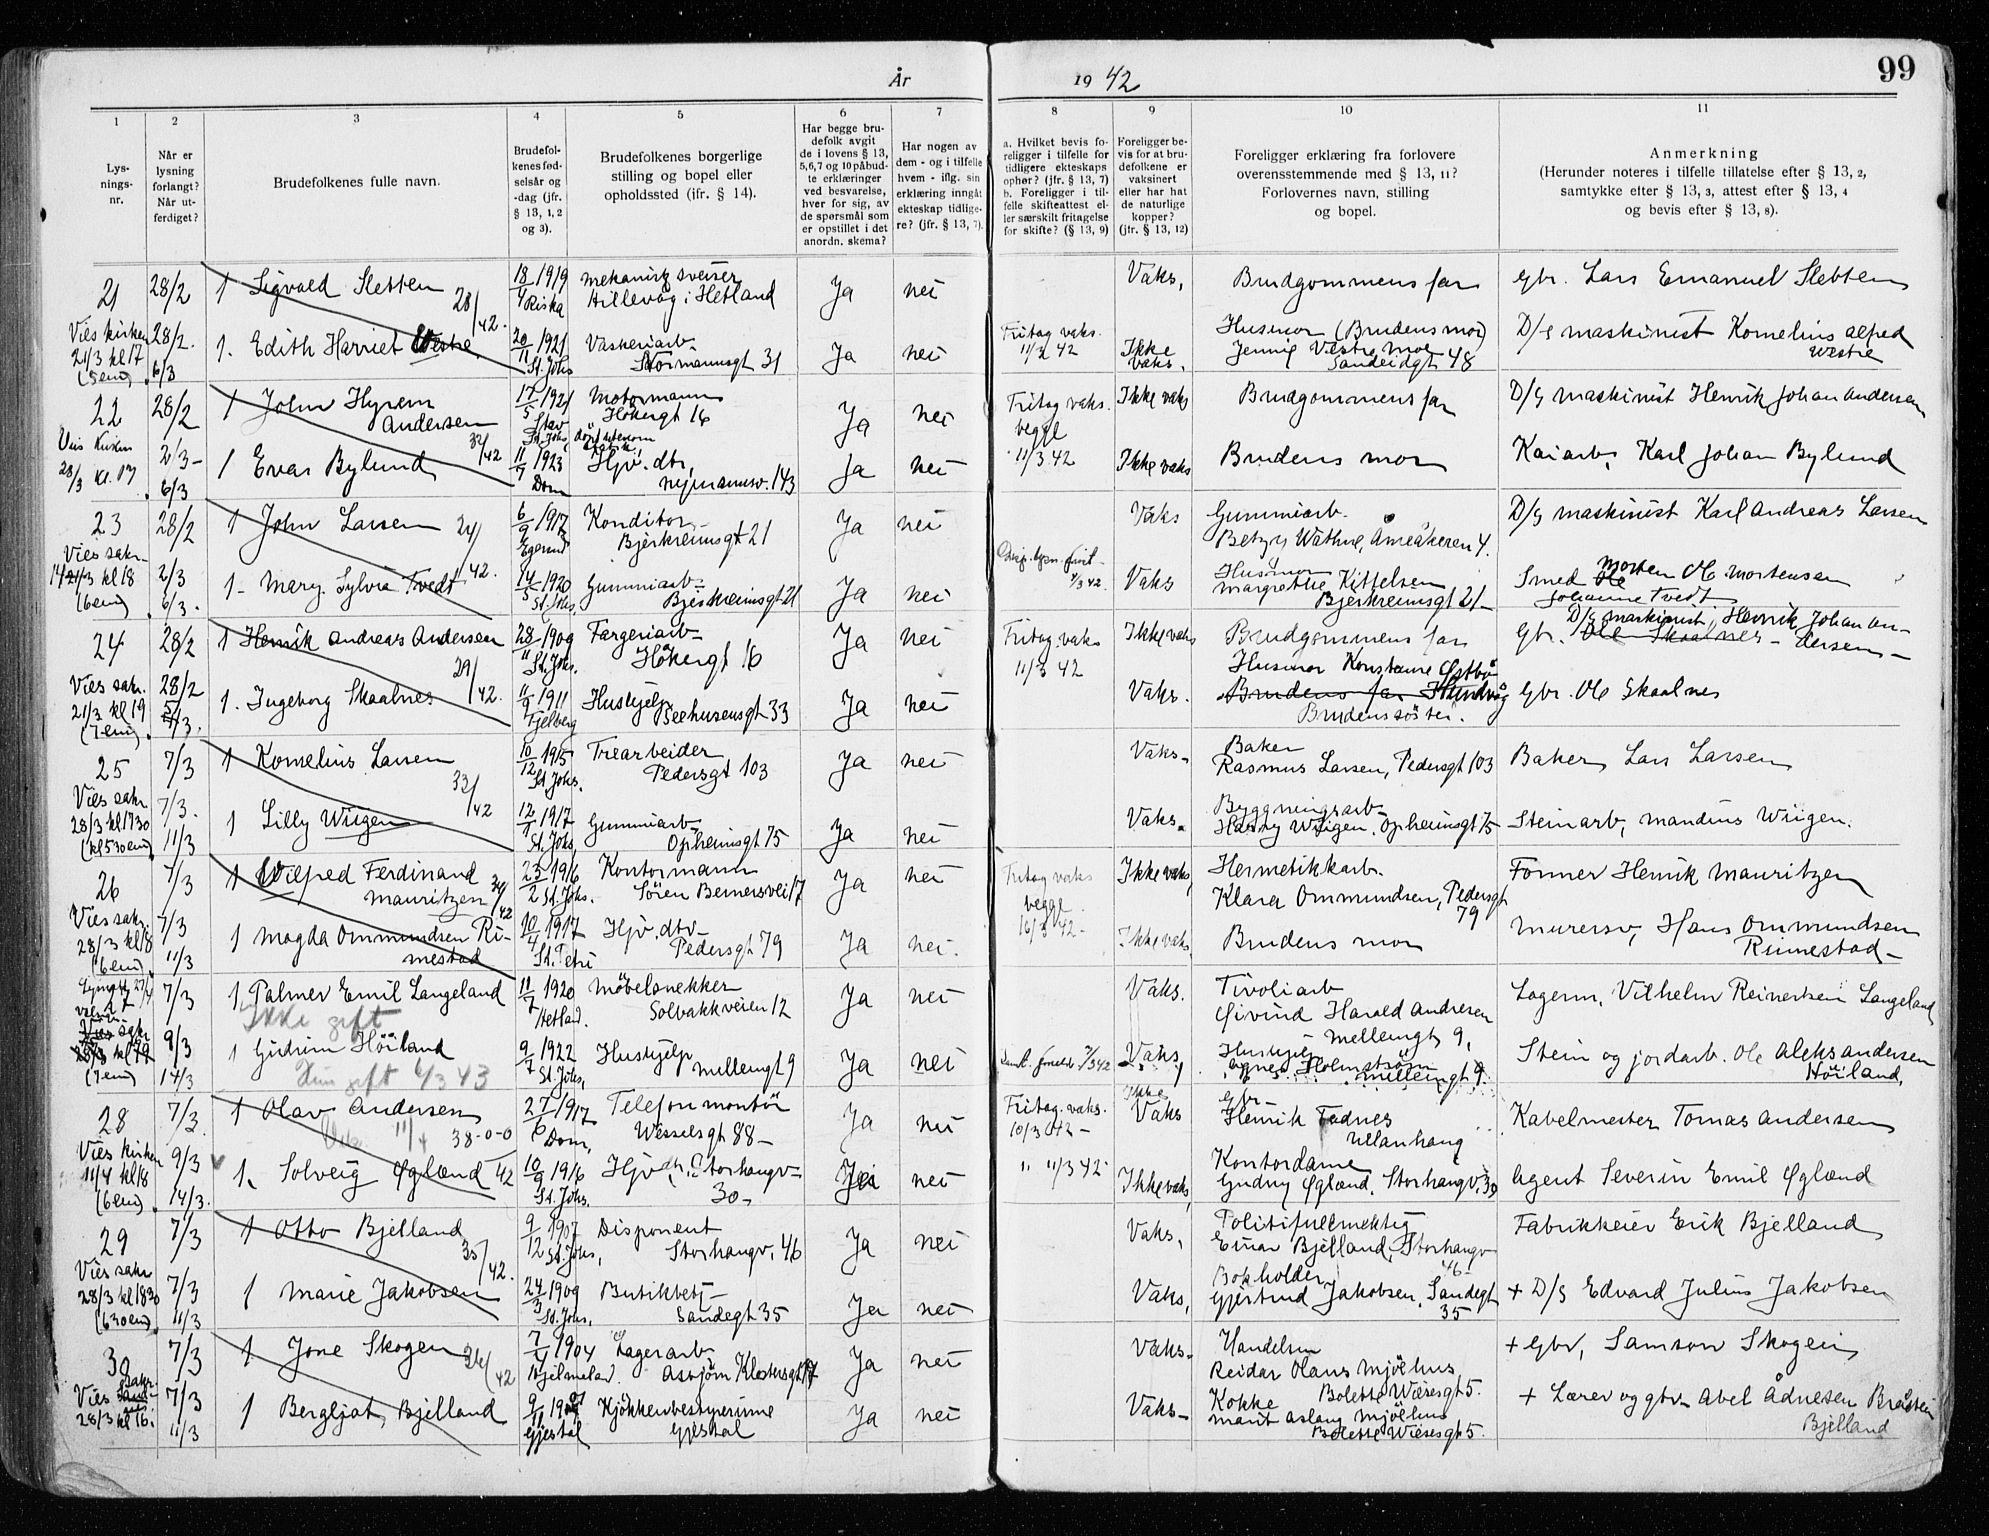 År 1942
99
1
2
3
4
5
6
7
8
9
10
11
Lys-
nings-
nr.
Når er
lysning
forlangt?
Når ut-
ferdiget?
Brudefolkenes fulle navn.
Brudefol-
kenes fød-
selsår og
-dag (jfr.
§ 13, 1, 2
og 3).
Brudefolkenes borgerlige
stilling og bopel eller
opholdssted (jfr. § 14).
Har begge bru-
defolk avgit
de i lovens § 13,
5,6,7 og 10 påbud-
te erklæringer
ved besvarelse,
hver for sig, av
de spørsmål som
er opstillet i det
anordn. skema?
Har nogen av
dem - og i tilfelle
hvem - iflg. sin
erklæring inngått
ekteskap tidlige-
re? (jfr. § 13, 7).
a. Hvilket bevis fo-
religger i tilfelle for
tidligere ekteskaps
ophør? (jfr. § 13, 7)
b. Foreligger i til-
felle skifteattest el-
ler særskilt fritagelse
for skifte? (§ 13, 9)
Foreligger be-
vis for at bru-
defolkene er
vaksinert
eller har hat
de naturlige
kopper?
(jfr. § 13, 12)
Foreligger erklæring fra forlovere
overensstemmende med § 13, 11?
Forlovernes navn, stilling
og bopel.
Anmerkning
(Herunder noteres i tilfelle tillatelse efter § 13, 2,
samtykke efter § 13, 3, attest efter § 13, 4
og bevis efter § 13, 8).
21 28/2 1 Sigvald Sletten 18/4 1919 Riska mekanisk sveiser Hillevåg i Hetland Ja nei Vaks, Brudgommens far Gbr. Lars Emanuel Sletten
28/42.
Vies kirken 21/3 kl 17 (5 em) 28/2. 6/3 1. Edith Harriet Westre 20/11 1921 St. Johs Vaskeriarb. Stormannsgt 31 Ja nei Fritag vaks. 11/3 42 Ikke vaks. Husmor (Brudens mor) Jennie Vestre Sandeidgt 48 D/s maskinist Kornelius Alfred Westre
22 28/2 1 John Hyrem Andersen 17/5 1921 Stav St. Johs, døpt utenom Motormann Høkergt 16 Ja nei Fritag vaks. begge 11/3 42 Ikke vaks Brudgommens far D/s maskinist Henrik Johan Andersen
32/42
Vies kirken 28/3 kl. 17 2/3 6/3 1 Evas Bylund 11/9 1923 Dom Hjv. dtr, 143 Ja nei Ikke vaks Brudens mor Kaiarb. Karl Johan Bylund
23 28/2 1 John Larsen 6/9 1917 Egersund Konditor Bjerkreimsgt 21 Ja nei Vaks Gummiarb. Betzy Wathne, Åmeåkeren 4. D/s maskinist Karl Andreas Larsen
24/42.
Vies sakr. 14/3 kl 18 (6 em) 2/3 6/3. 1 Mary Sylvia Tvedt 14/5 1920 St. Johs. Gummiarb. Bjerkreimsgt 21 Ja nei 7/3 42 Vaks Husmor Margrethe Kittelsen Bjerkreimsgt 21 Smed Morten Ole Mortensen Johanne Tvedt
24 28/2 1 Henrik Andreas Andersen 28/11 1909 St. Johs. Fargeriarb Høkergt 16 Ja nei Fritag. vaks 11/3 42 Ikke vaks Brudgommens far D/s maskinist, Henrik Johan Andersen Gbr. Ole Skaalnes
29/42.
Vies sakr. 21/3 kl 19 (7 em) 28/2 1. Ingeborg Skaalnes 11/9 1911 Fjelberg Hushjelp Beehusensgt 33 Ja nei Vaks. Husmor Konstanse Østbø Brudens far Hundvåg Brudens søster. Gbr. Ole Skaalnes
25 7/3 1 Kornelius Larsen 10/12 1915 St. Johs. Trearbeider Pedersgt 103 Ja nei Vaks. Baker Rasmus Larsen, Pedersgt 103 Baker Lars Larsen
33/42
Vies sakr 28/3 kl 1730 (kl 530 em) 7/3. 11/3 1 Lilly Wiigen 12/1 1917 St. Johs Gummiarb. Opheimsgt 75 Ja nei Vaks. Byggningsarb Harry Wiigen. Opheimsgt 75 Steinarb, Mandius Wiigen.
26 7/3 1 Wilfred Ferdinand Mauritzen 23/2 1916 St. Johs. Kontormann Søren Berners vei 17 Ja nei Fritag vaks begge 16/3 42 Ikke vaks, Hermetikkarb. Klara Ommundsen, Pedersgt 79 Former Henrik Mauritzen
Vies sakr 28/3 kl 18 (6 em) 7/3 11/3 1 Magda Ommundsen Rimestad 10/4 1917 St. Petri Hjv. dtr Pedersgt 79 Ja nei. Ikke vaks. Brudens mor Murersv, Hans Ommundsen Rimestad
27 7/3 1 Palmer Emil Langeland 11/7 1920 Hetland. Møbelsnekker Solbakkveien 12 Ja nei Vaks. Tivoliarb Øivind Harald Andresen Mellemgt 9, Lagerm, Vilhelm Reinertsen Langeland
Ikke gift
Vies sakr 28/3 kl 19 (7 em) 9/3 14/3 1 Gudrun Høiland 9/7 1922 St. Johs, Hushjelp Mellemgt 9 Ja nei 7/3 42 Vaks, Hushjelp Agnes Holmstrøm Mellemgt 9. Stein og jordarb. Ole Aleksandersen Høiland,
Hun gift 6/3 43
28 7/3. 1 Olav Andersen 27/6 1917 Dom, Telefonmontør Wesselsgt 88 Ja nei Fritag. vaks. 10/3 42 Ikke Vaks Gbr Henrik Fadnes Ullanhaug Kabelmester Tomas Andersen
11/4 38-0-0
Vies kirken 11/4 kl 18 (6 em) 9/3 14/3. 1. Solveig Øglænd 42 10/9 1916 St. Johs. Hjv. Storhaugv 30 Ja nei 11/3 42 Ikke vaks Kontordame Gudny Øglænd. Storhaugv. 30 Agent Severin Emil Øglænd
29 7/3 1 Otto Bjelland 9/12 1907 St. Johs, Disponent Storhaugv. 46 Ja nei Vaks, Politifullmektig Einar Bjelland, Storhaugv 46 Fabrikkeier Erik Bjelland
35/42.
Vies sakr 28/3 kl 1830 (630 em) 7/3 11/3 1 Marie Jakobsen 24/3 1909 St. Johs, Butikbetj Sandegt 35 Ja nei Vaks, Bokholder Gjertrud Jakobsen, Sandegt 35 + D/s Edvard Julius Jakobsen
30 7/3 1 Jone Skogen 7/4 1904 Hjelmeland. Lagerarb. Asbjørn Klostersgt 17 Ja nei Vaks. Handelsm Reidar Olaus Mjølhus Bolette Wiesesgt 5. + Gbr, Samson Skogen
36/42
Vies sakr 28/3 kl 16. 7/3 11/3 1 Bergljot Bjelland 9/11 1907 Gjestal Kjøkkenbestyrerinne Gjestal Ja nei Vaks Kokke Marit Aslaug Mjølhus Bolette Wiesesgt 5. + Lærer og gbr. Abel Ådnesen Bråstein Bjelland